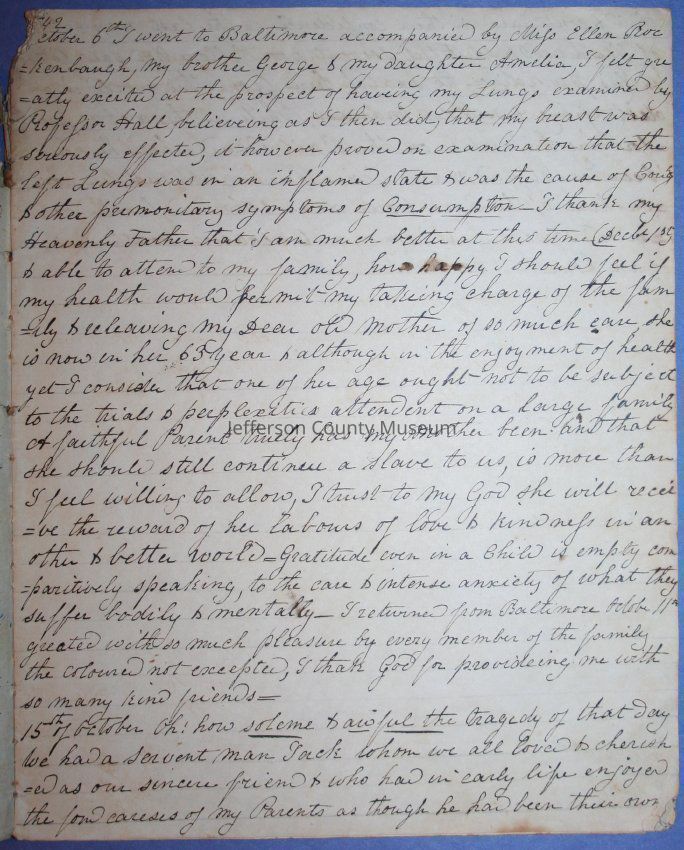 42
October 6th I went to Baltimore accompanied by Miss Ellen Roc
=kenbaugh, my brother George & my daughter Amelia, I felt gre
=atly excited at the prospect of haveing my Lungs examined by
Professor Hall, believeing as I then did, that my breast was
seriously effected, it however proved on examination that the
left Lungs was in an inflamed state & was the cause of Coug
& other premonitary symptoms of Consumpton - I thank my
Heavenly Father that I am much better at this time (Decbr 1st)
& able to attend to my family, how happy I should feel if
my health would permit my takeing charge of the fam
=ily & releaving my Dear old Mother of so much care, she
is now in her 65 year & although in the enjoyment of health
yet I consider that one of her age ought not to be subject
to the trials & perplexities attendent on a large family
A faithful Parent truely has my mother been and that
she should still continue a slave to us, is more than
I feel willing to allow, I trust to my God she will recei
=ve the reward of her labours of love & kindness in an
other & better world = Gratitude even in a Child is empty com
=paritively speaking, to the care & intense anxiety of what they
suffer bodily & mentally - I returned from Baltimore October 11th
greeted with so much pleasure by every member of the family
the coloured not excepted, I thak God for provideing me with
so many kind friends =
15th of October Oh! how soleme & awful the tragedy of that day
We had a servent man Jack whom we all loved & cherish
=ed as our sincere friend & who had in early life enjoyed
the fond careses of my Parents as though he had been their own
Jefferson County Museum